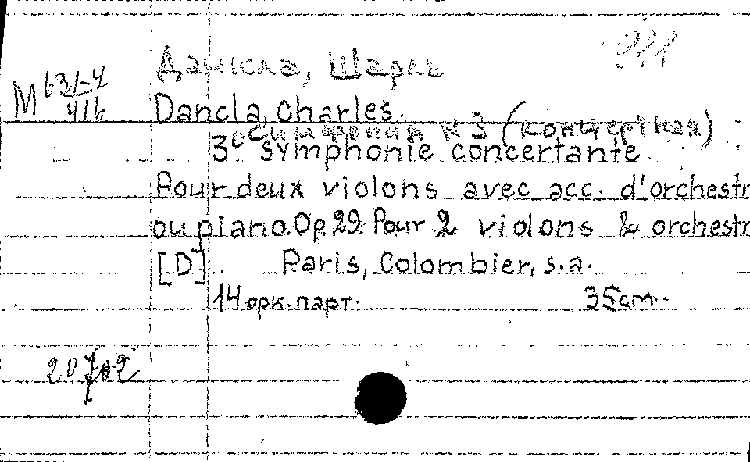 Данкла, Шарль
M 631-4/416
Dancla, Charles.
Симфония № 3 (концертная)
3e symphonie concertante
Pour deux violons avec acc. d'orchestr
ou piano. Op. 29. Pour 2 violons & orchestr
[D]. Paris, Colombier, s.a.
14 орк. парт. 35cm.